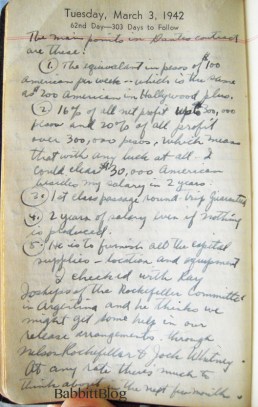 Tuesday, March 3, 1942
62nd Day—303 Days to Follow
The main points in Dantes contract
are these:
(1.) The equivalent in pesos of $100
American per week - which is the same
as $200 American in Hollywood plus.
(2.) 16% of all net profit up to 300,000
pesos and 20% of all profit
over 300,000 pesos, which means
that with any luck at all I
could clear $30,000 American
besides my salary in 2 years.
(3.) 1st class passage round-trip guaranteed
(4.) 2 years of salary even if nothing
is produced.
(5.) He is to furnish all the capital
supplies - location and equipment
I checked with Ray
Josephs of the Rockefeller Committee
in Argentina and he thinks we
might get some help in our
release arrangements through
Nelson Rockefeller & Jock Whitney.
At any rate there's much to
think about in the next few months.
BabbittBlog